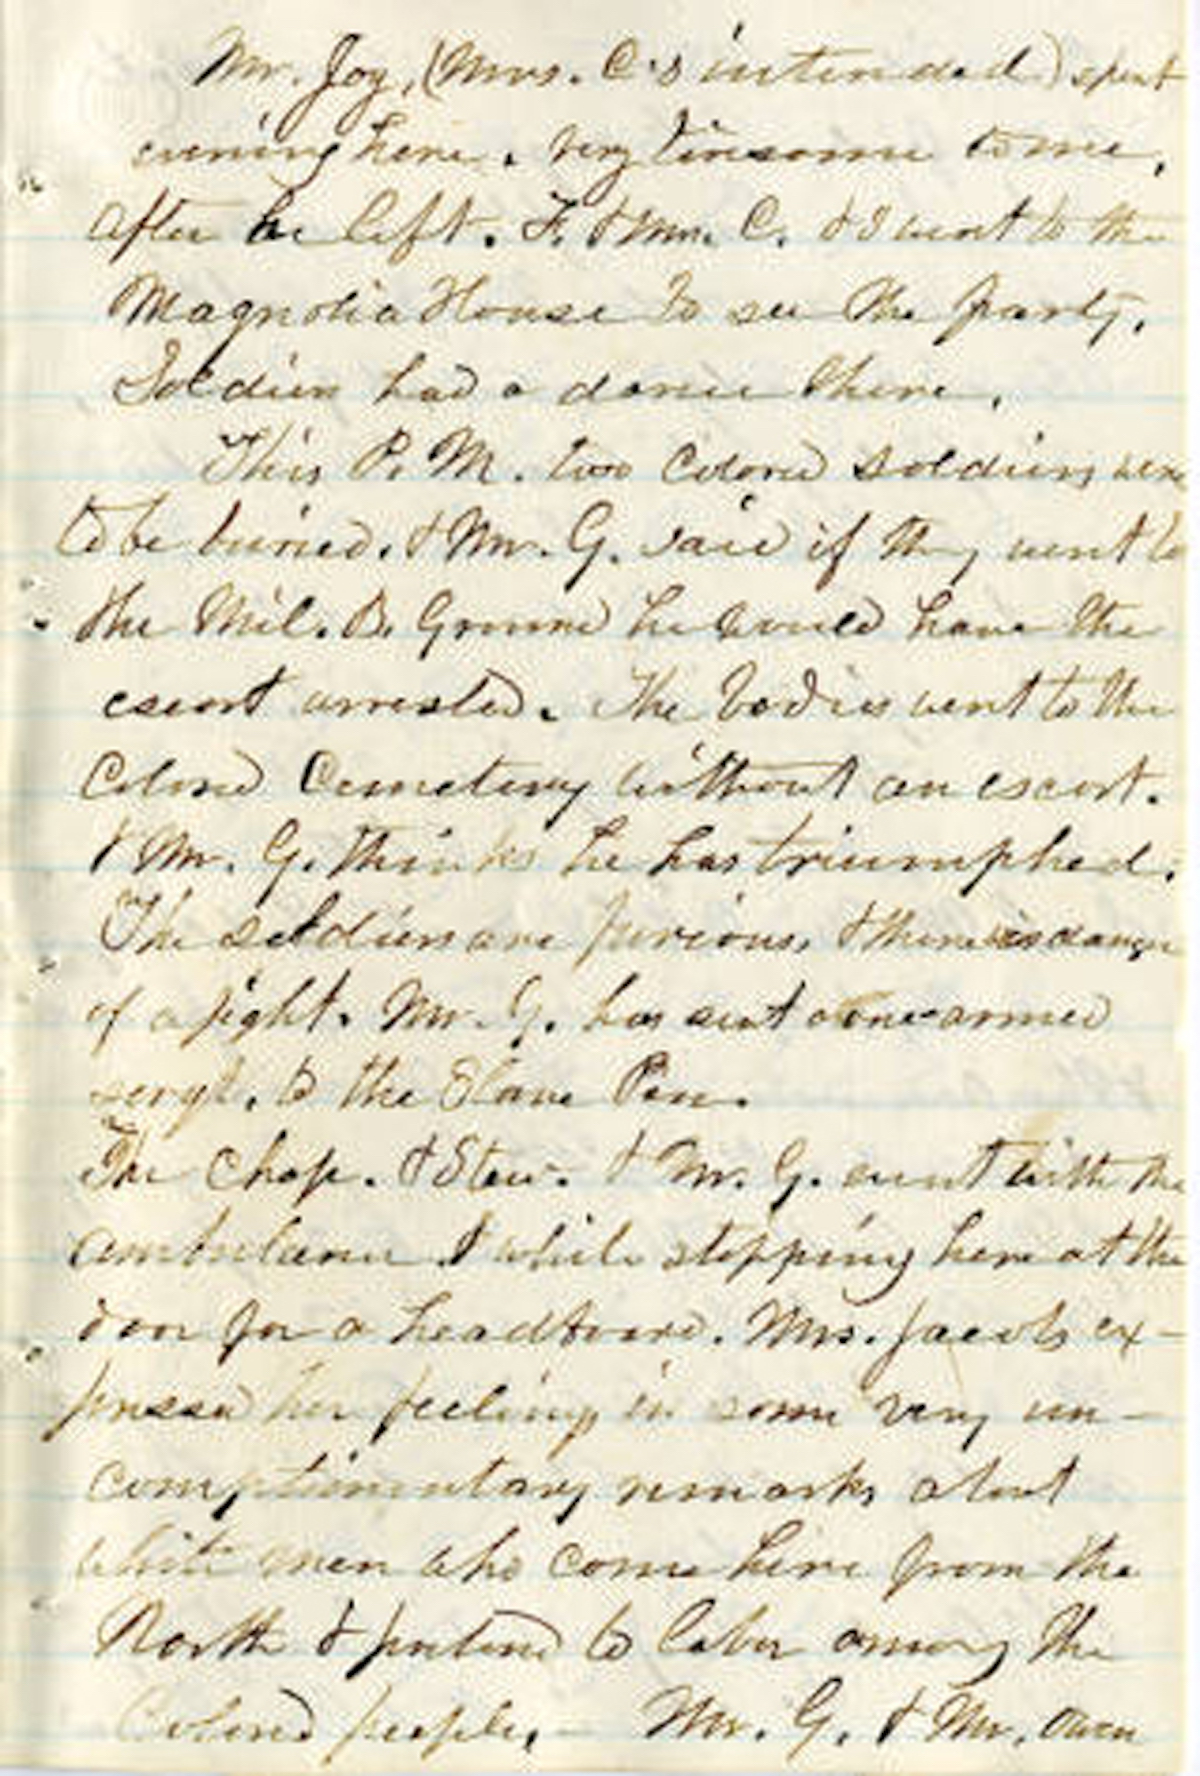 Mr. Joy, (Mrs. C's intended) spent
evening here. very tiresome to me,
after he left. F. & Mrs. C. & I went to the
Magnolia House to see the party.
Soldiers had a dance there.
This P. M. two Colored soldiers were
to be buried. & Mr. G. said if they went to
the Mil. B. Ground he would have the
escort arrested. The bodies went to the
Colored Cemetery without an escort.
& Mr. G. thinks he has triumphed.
The soldiers are furious, & there is danger
of a fight. Mr. G. has sent a one-armed
sergt. to the Slave Pen.
The Chap. & Stew. & Mr. G. went with the
ambulance & while stopping here at the
door for a headboard. Mrs. Jacobs ex-
pressed her feelings in some very un-
complimentary remarks about
white men who come here from the
North & pretend to labor among the
Colored people. - Mr. G. & Mr. Owen